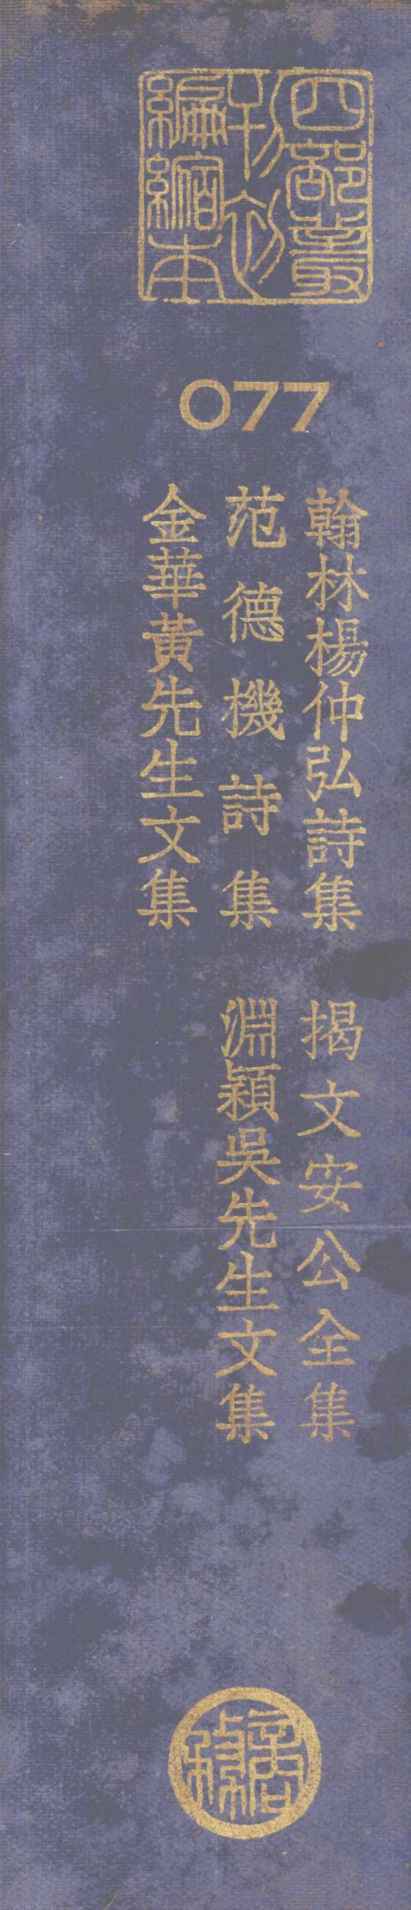 四部叢
刊初
編縮本
077
翰林楊仲弘詩集
揭文安公全集
范德機詩集
淵穎吳先生文集
金華黃先生文集
商務